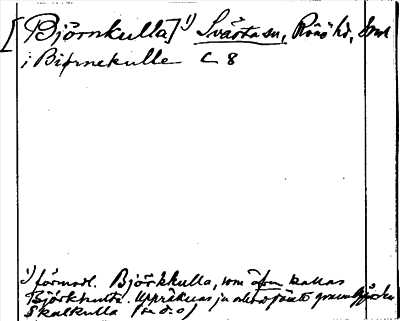 [Björnkulla] 1) Svärta sn, Rönö hd, Srml
i Biørnekulle C 8
1) förmodl. Björkkulla, som även kallas
Björkhulta. Uppräknas ja
Skalkulla (se d. o)